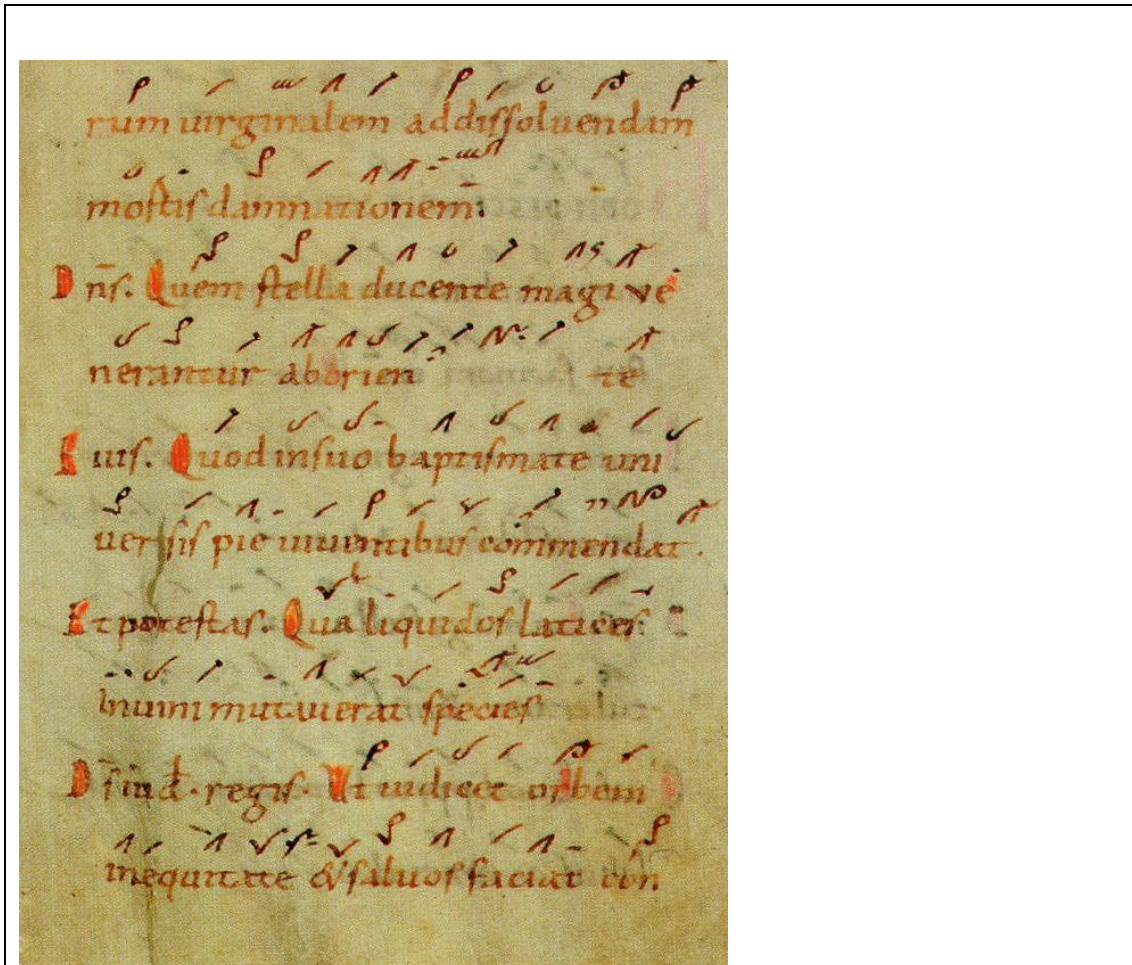 rum uirginalem addissoluendam
mortis damnationem.
Dn̄s. Quem stella ducente magi ve
nerantur aborien te
Euis. Quod insuo baptismate uni
uersis pie uiuentibus commendat.
Et potestas. Qua liquidos latices
inuini mutauerat species
regis. Ut iudicet orbem
inequitate & saluos faciat con